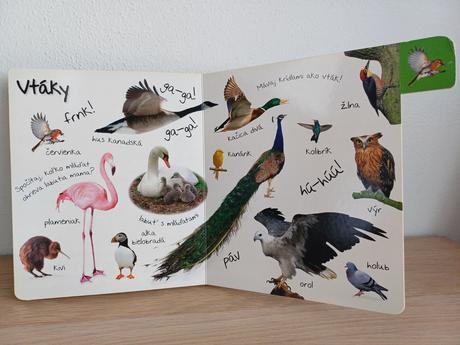 Vtáky
frnk!
ga-ga!
ga-ga!
červienka
hus kanadská
Spočítaj, koľko mláďat
ohrieva labutia mama?
plameniak
labuť s mláďatami
alka
bielobradá
kivi
Mávaj krídlami ako vták!
kačica divá
žlna
kanárik
kolibrík
hú-húú!
výr
páv
orol
holub